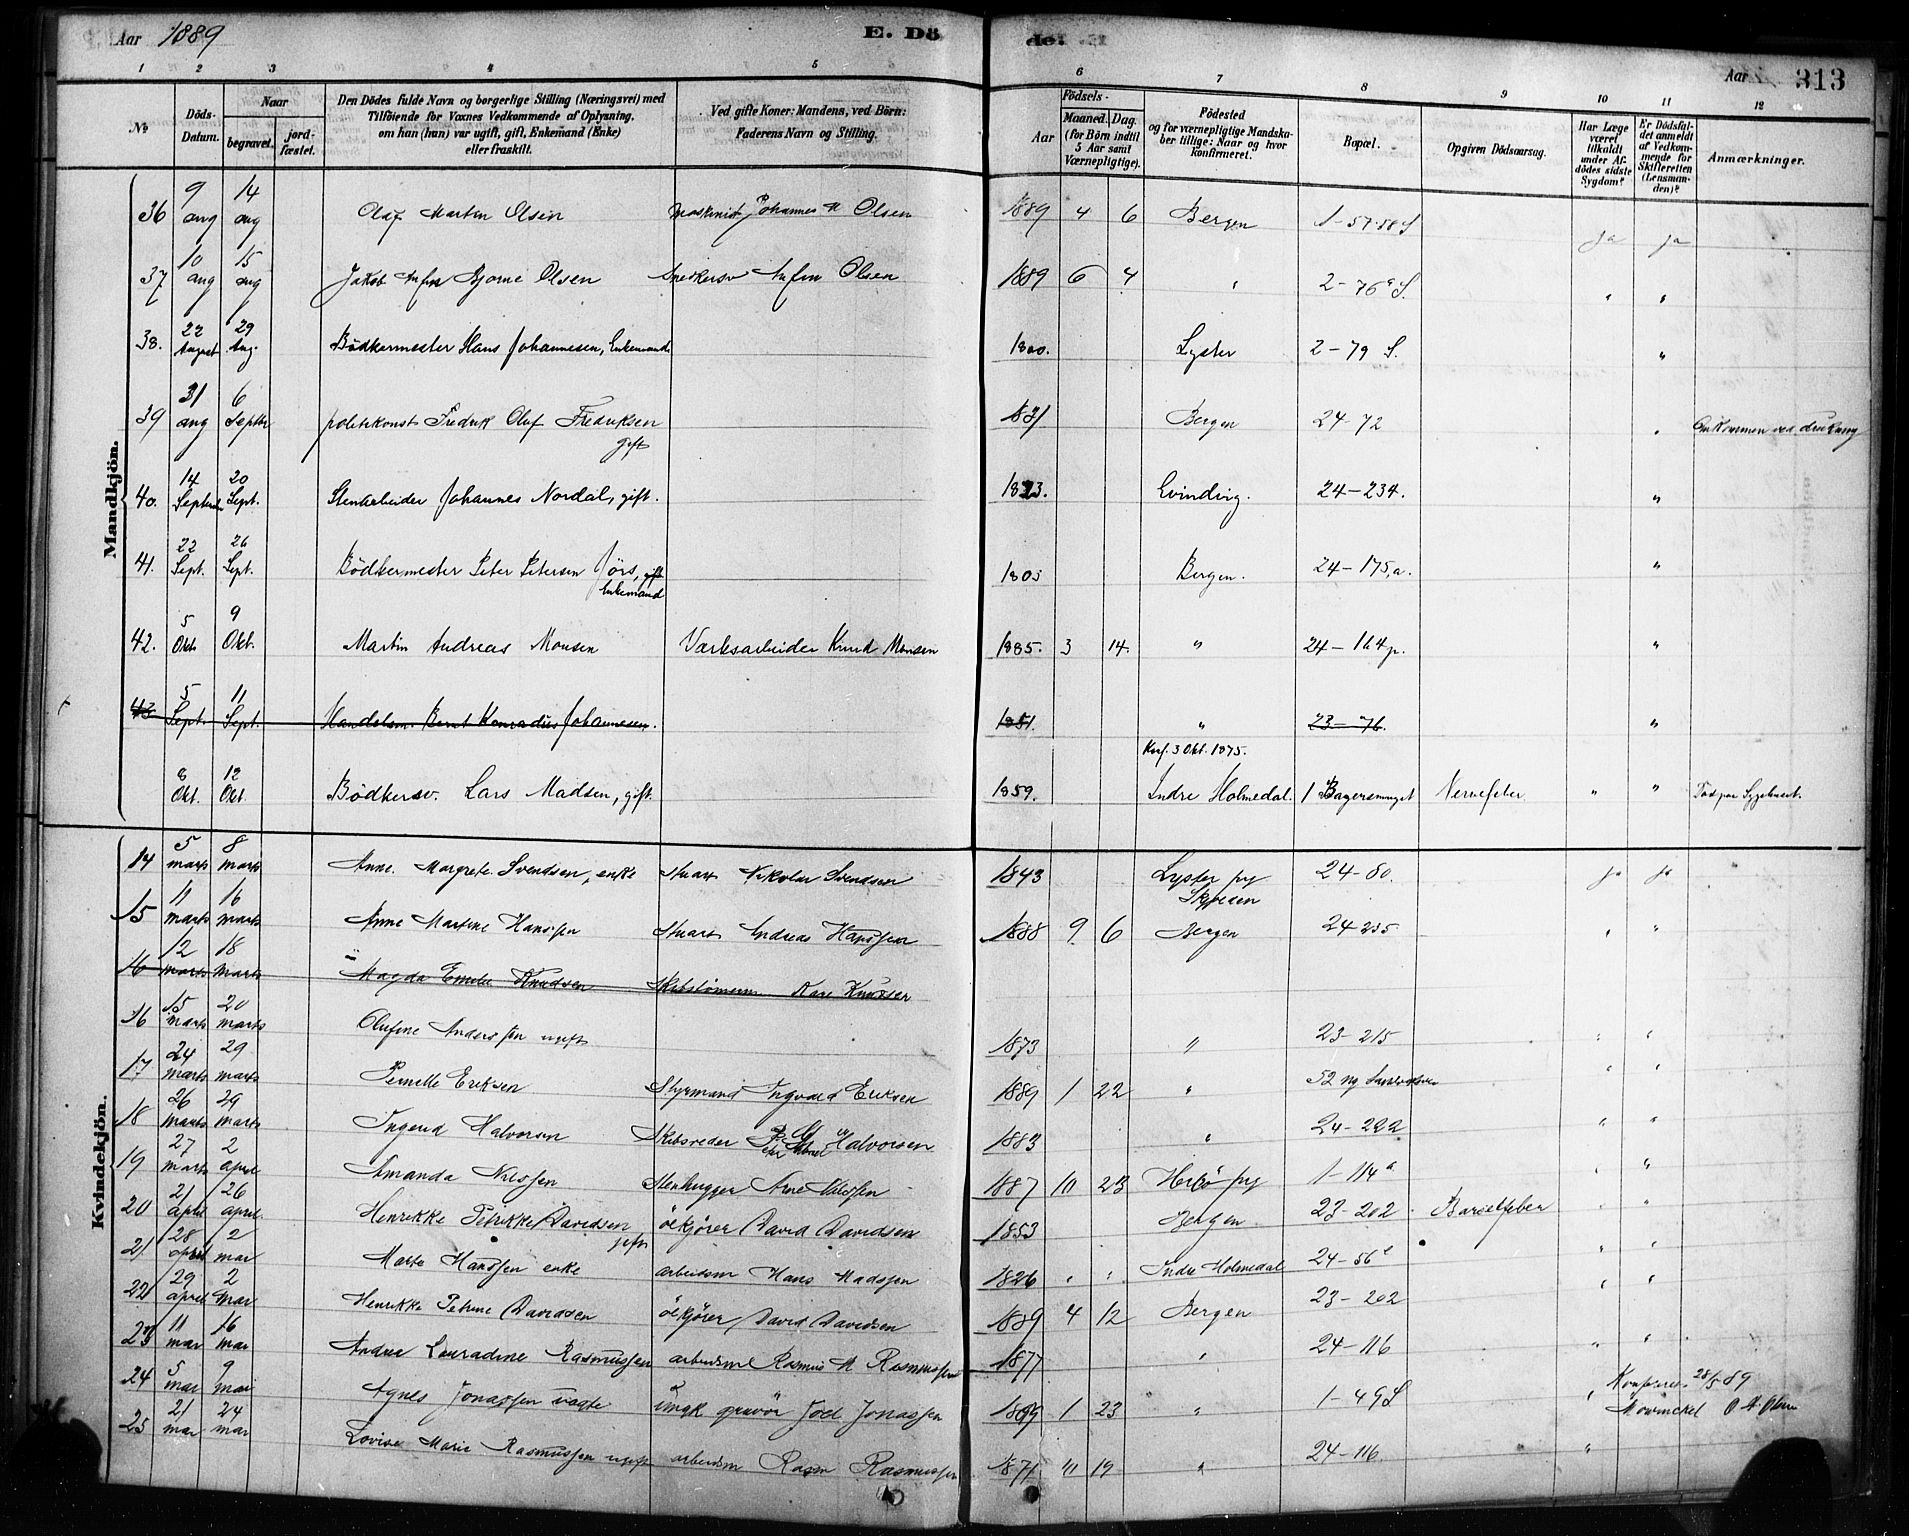 Aar 1889 E. Dö de. Aar 313
1 2 3 4 5 6 7 8 9 10 11 12
No
Döds-Datum.
Naar
begravet.
jord-fæstet.
Den Dödes fulde Navn og borgerlige Stilling (Næringsvei) med
Tilföiende for Voxnes Vedkommende af Oplysning,
om han (hun) var ugift, gift, Enkemand (Enke)
eller fraskilt.
Ved gifte Koner: Mandens, ved Börn:
Faderens Navn og Stilling.
Födsels-
Aar
Maaned. Dag.
(for Börn indtil
5 Aar samt
Værnepligtige).
Födested
og for værnepligtige Mandska-
ber tillige: Naar og hvor
konfirmeret.
Bopæl.
Opgiven Dödsaarsag.
Har Læge
været
tilkaldt
under Af-
dödes sidste
Sygdom?
Er Dödsfal-
det anmeldt
af Vedkom-
mende for
Skifteretten
(Lensman-
den)?
Anmærkninger.
Mandkjön.
36 9 aug 14 aug Olaf Martin Olsen Maskinist Johannes M Olsen 1889 4 6 Bergen 1-57-58 S ja ja
37 10 aug 15 aug Jakob Anfin Bjorne Olsen Snedkersv Anfin Olsen 1889 6 4 " 2-76a S. " "
38. 22 August 29 Aug. Bödkermester Hans Johannesen, Enkemand 1800. Lyster 2-79 S. "
39 31 aug 6 Septbr politikonst Fredrik Oluf Fredriksen gift 1831 Bergen 24-72 " Omkommen ved drukning
40. 14 September 20 Sept. Stenarbeider Johannes Nordal, gift. 1823. Evindvig. 24-234. "
41. 22 Sept. 26 Sept. Bödkermester Peter Petersen Jörs, gift Enkemand 1805 Bergen. 24-175,a. "
42. 5 Okt 9 Okt. Martin Andreas Monsen Værksarbeider Knud Monsen 1885. 3 14. " 24-164p. "
43 5 Sept. 11 Sept. Handelsm. Bernt Konradus Johannesen. 1851. " 23-76. "
8 Okt. 12 Okt. Bödkersv. Lars Madsen, gift. 1859. Konf. 3 Okt. 1875. Indre Holmedal. 1 Bagersmuget Nervefeber " " Död paa Sygehuset.
Kvindekjön.
14 5 marts 8 marts Anne Margrete Svendsen, enke Stuart Nikolai Svendsen 1843 Lyster pg 24-80. ja ja
15 11 marts 16 marts Anne Martine Hanssen Stuart Andreas Hanssen 1888 9 6 Bergen 24-235 " "
16 12 marts 18 marts Magda Emilie Knudsen Skibstömerm Kare Knudsen
16 15 marts 20 marts Olufine Anderssen ugift 1873 " 23-215 " "
17 24 marts 29 marts Pernille Eriksen Styrmand Ingvald Eriksen 1889 1 22 " 52 ny " "
18 26 marts 29 marts Ingerid Halvorsen Skibsreder Halvorsen 1883 " 24-222 " "
19 27 marts 2 april Amanda Nilssen Stenhugger Arne Nilssen 1887 10 23 Herlö pg 1-114a " "
20 21 april 26 april Henrikke Petrikke Davidsen gift ölkjörer David Davidsen 1853 Bergen 23-202 Barselfeber " "
21 28 april 2 mai Marte Hanssen enke arbeidsm Hans Madssen 1826 " " Indre Holmedal 24-56 " "
22 29 april 2 mai Henrikke Petrine Davidsen ölkjörer David Davidsen 1889 4 12 Bergen 23-202 " "
23 11 mai 16 mai Andrea Lauradine Rasmussen arbeidsm Rasmus M Rasmussen 1877 " 24-116 " "
24 5 mai 9 mai Agnes Jonassen uægte Ungk gravör Joel Jonassen 1889 1 23 " 1-49S " 28/5 89 Mowinckel O A Olsen
25 21 mai 24 mai Lovise Marie Rasmussen ugift arbeidsm Rasm Rasmussen 1871 11 19 " 24-116 "